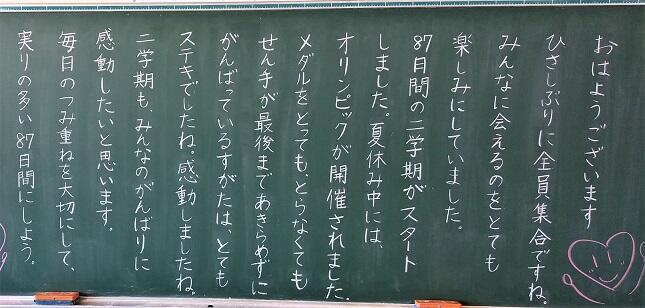 おはようございます
ひさしぶりに全員集合ですね。
みんなに会えるのをとても
楽しみにしていました。
87日間の二学期がスタート
しました。夏休み中には、
オリンピックが開催されました。
メダルをとっても、とらなくても
せん手が最後まであきらめずに
がんばっているすがたは、とても
ステキでしたね。感動しましたね。
二学期も、みんなのがんばりに
感動したいと思います。
毎日のつみ重ねを大切にして、
実りの多い87日間にしよう。